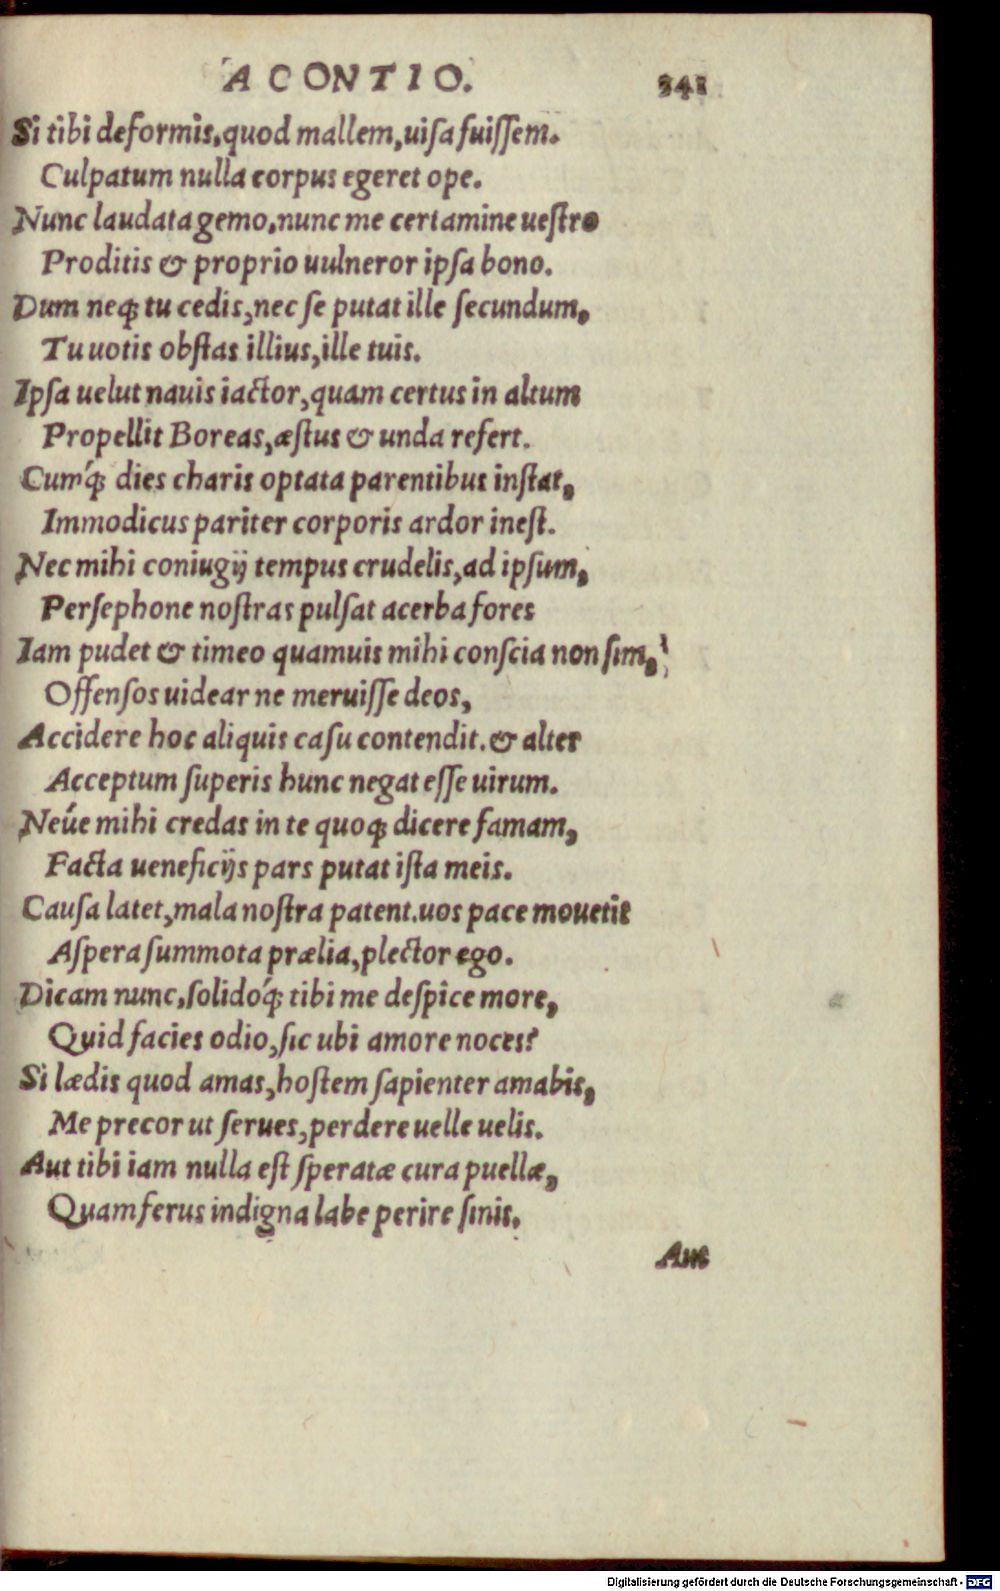 ACONTIO. 341
Si tibi deformis, quod mallem, uiſa fuiſſem.
Culpatum nulla corpus egeret ope.
Nunc laudata gemo, nunc me certamine ueſtro
Proditis & proprio uulneror ipſa bono.
Dum neq; tu cedis, nec ſe putat ille ſecundum,
Tu uotis obſtas illius, ille tuis.
Ipſa uelut nauis iactor, quam certus in altum
Propellit Boreas, æſtus & unda refert.
Cum´q; dies charis optata parentibus inſtat,
Immodicus pariter corporis ardor ineſt.
Nec mihi coniugij tempus crudelis, ad ipſum,
Perſephone noſtras pulſat acerba fores
Iam pudet & timeo quamuis mihi conſcia non ſim,
Offenſos uidear ne meruiſſe deos,
Accidere hoc aliquis caſu contendit. & alter
Acceptum ſuperis hunc negat eſſe uirum.
Neúe mihi credas in te quoq; dicere famam,
Facta ueneficijs pars putat iſta meis.
Cauſa latet, mala noſtra patent. uos pace mouetis
Aſpera ſummota prælia, plector ego.
Dicam nunc, ſolidó q; tibi me deſpice more,
Quid facies odio, ſic ubi amore noces?
Si lædis quod amas, hoſtem ſapienter amabis,
Me precor ut ſerues, perdere uelle uelis.
Aut tibi iam nulla eſt ſperatæ cura puellæ,
Quam ferus indigna labe perire ſinis.
Aut
Digitalisierung gefördert durch die Deutsche Forschungsgemeinschaft - DFG